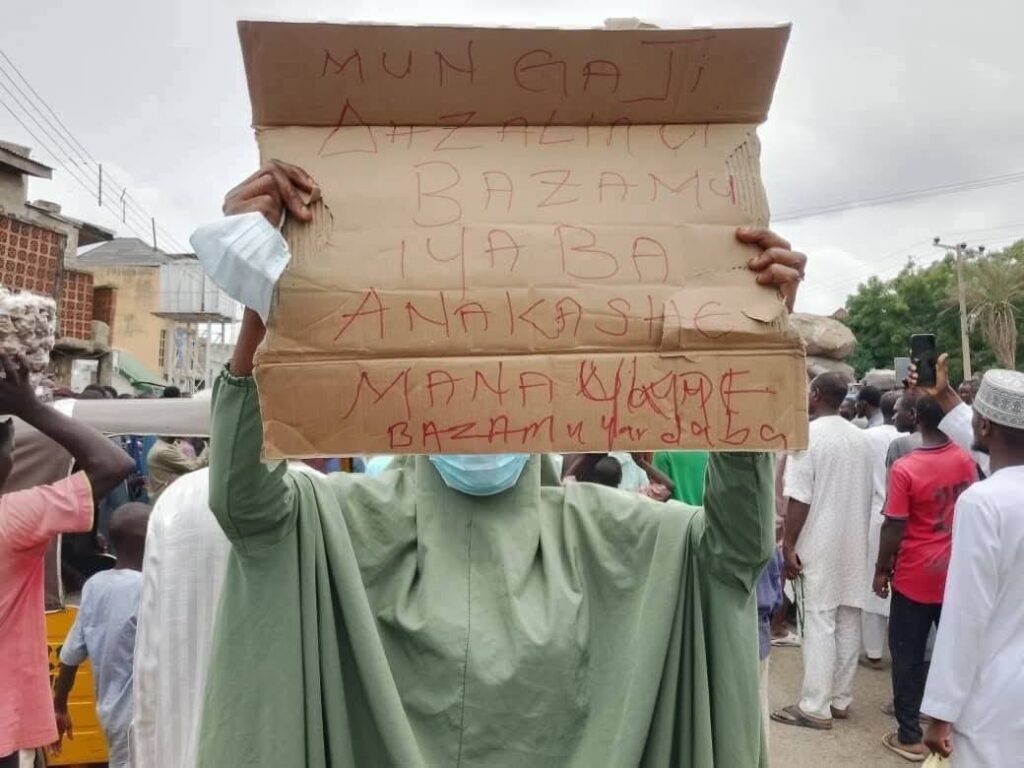 MUN GAJI
DAZALINCI
BAZAMU
IYA BA
ANAKASHE
MANA
BAZAMU Yar daba